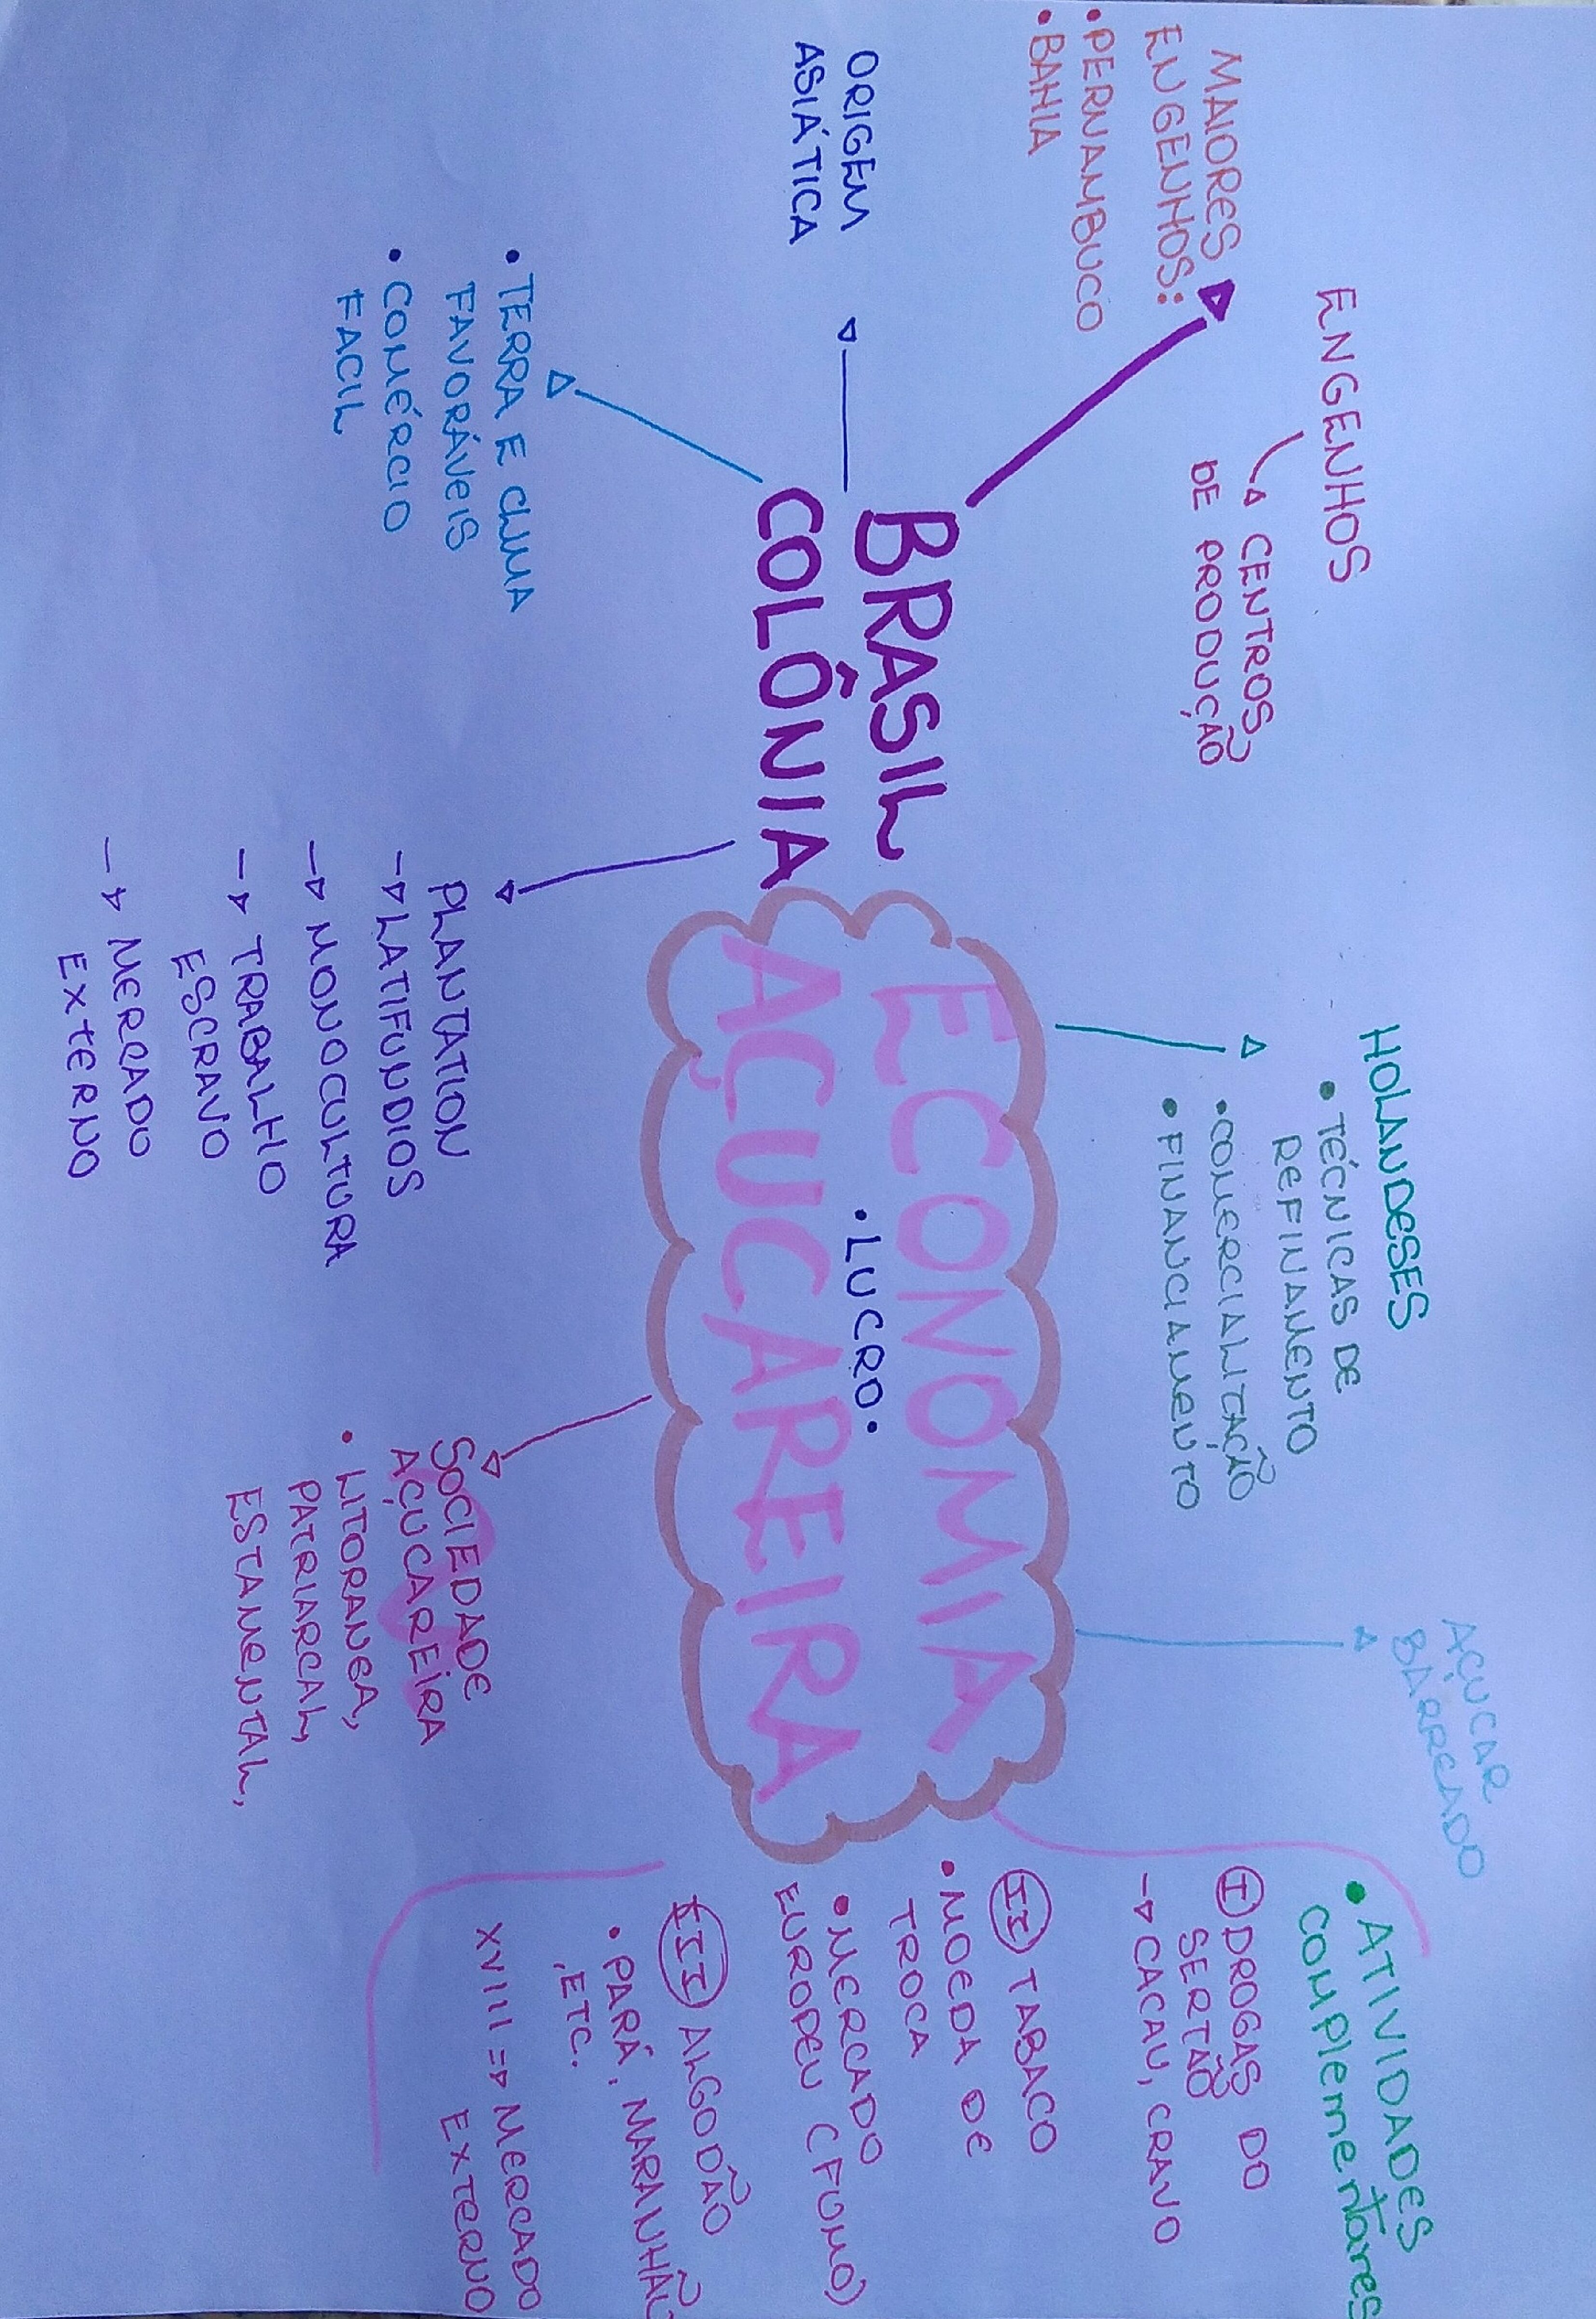 ENGENHOS
CENTROS
DE PRODUÇÃO
MAIORES
ENGENHOS:
• PERNAMBUCO
• BAHIA
ORIGEM
ASIÁTICA
• TERRA E CLIMA
FAVORÁVEIS
• COMÉRCIO
FACIL
BRASIL
COLÔNIA
PLANTATION
→ LATIFUNDIOS
→ MONOCULTURA
→ TRABALHO
ESCRAVO
→ MERCADO
EXTERNO
HOLANDESES
• TÉCNICAS DE
REFINAMENTO
• COMERCIALITAÇÃO
• FINANCIAMENTO
ECONOMIA
• LUCRO •
AÇUCAREIRA
SOCIEDADE
AÇUCAREIRA
• LITORANEA,
PATRIARCAL,
ESTAMENTAL,
AÇUCAR
BARREADO
• ATIVIDADES
complementares
I DROGAS DO
SERTÃO
→ CACAU, CRAVO
II TABACO
• MOEDA DE
TROCA
• MERCADO
EUROPEU (FUMO)
III ALGODÃO
• PARÁ, MARANHÃO
, ETC.
XVIII ⇒ MERCADO
EXTERNO